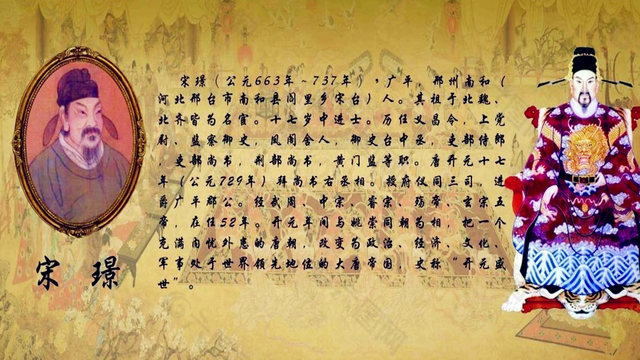 宋璟（公元663年~737年），广平，邢州南和（
河北邢台市南和县阎里乡宋台）人。其祖于北魏、
北齐皆为名宦。十七岁中进士。历任义昌令，上党
尉、监察御史，凤阁舍人，御史台中丞，吏部侍郎
，吏部尚书，刑部尚书，黄门监等职。唐开元十七
年（公元729年）拜尚书右丞相。授府仪同三司，进
爵广平郡公。经武周、中宗、睿宗、殇帝、玄宗五
帝，在任52年。开元年间与姚崇同朝为相，把一个
充满内忧外患的唐朝，改变为政治、经济、文化、
军事处于世界领先地位的大唐帝国，史称“开元盛
世”。
宋 璟